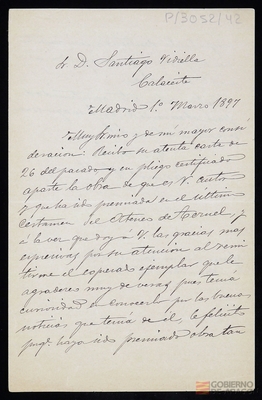 P/3052/42
Sr. D. Santiago Vidiella
Calaceite
Madrid 1º Marzo 1897
Muy Sr mio y de mi mayor consi
deracion: Recibo su atenta carta de
26 del pasado y en pliego certificado
aparte la obra de que es V. autor
y que ha sido premiada en el último
certamen del Ateneo de Teruel, y
á la vez que doy á V. las gracias mas
expresivas por su atencion al remi
tirme el ejemplar que le
agradezco muy de veras, pues tenia
curiosidad en conocerla por las buenas
noticias que tenia de el, le felicito
haya sido premiada obra tan
GOBIERNO
DE ARAGON